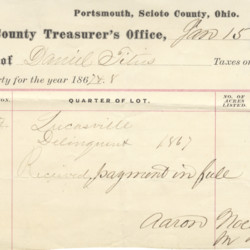 Portsmouth, Scioto County, Ohio.
County Treasurer's Office, Jan 15
of Daniel Titus Taxes o
ty for the year 1867 & 8
QUARTER OF LOT. NO. OF ACRES LISTED
Lucasville
Delinquent 1867
Received payment in full
Aaron Noel